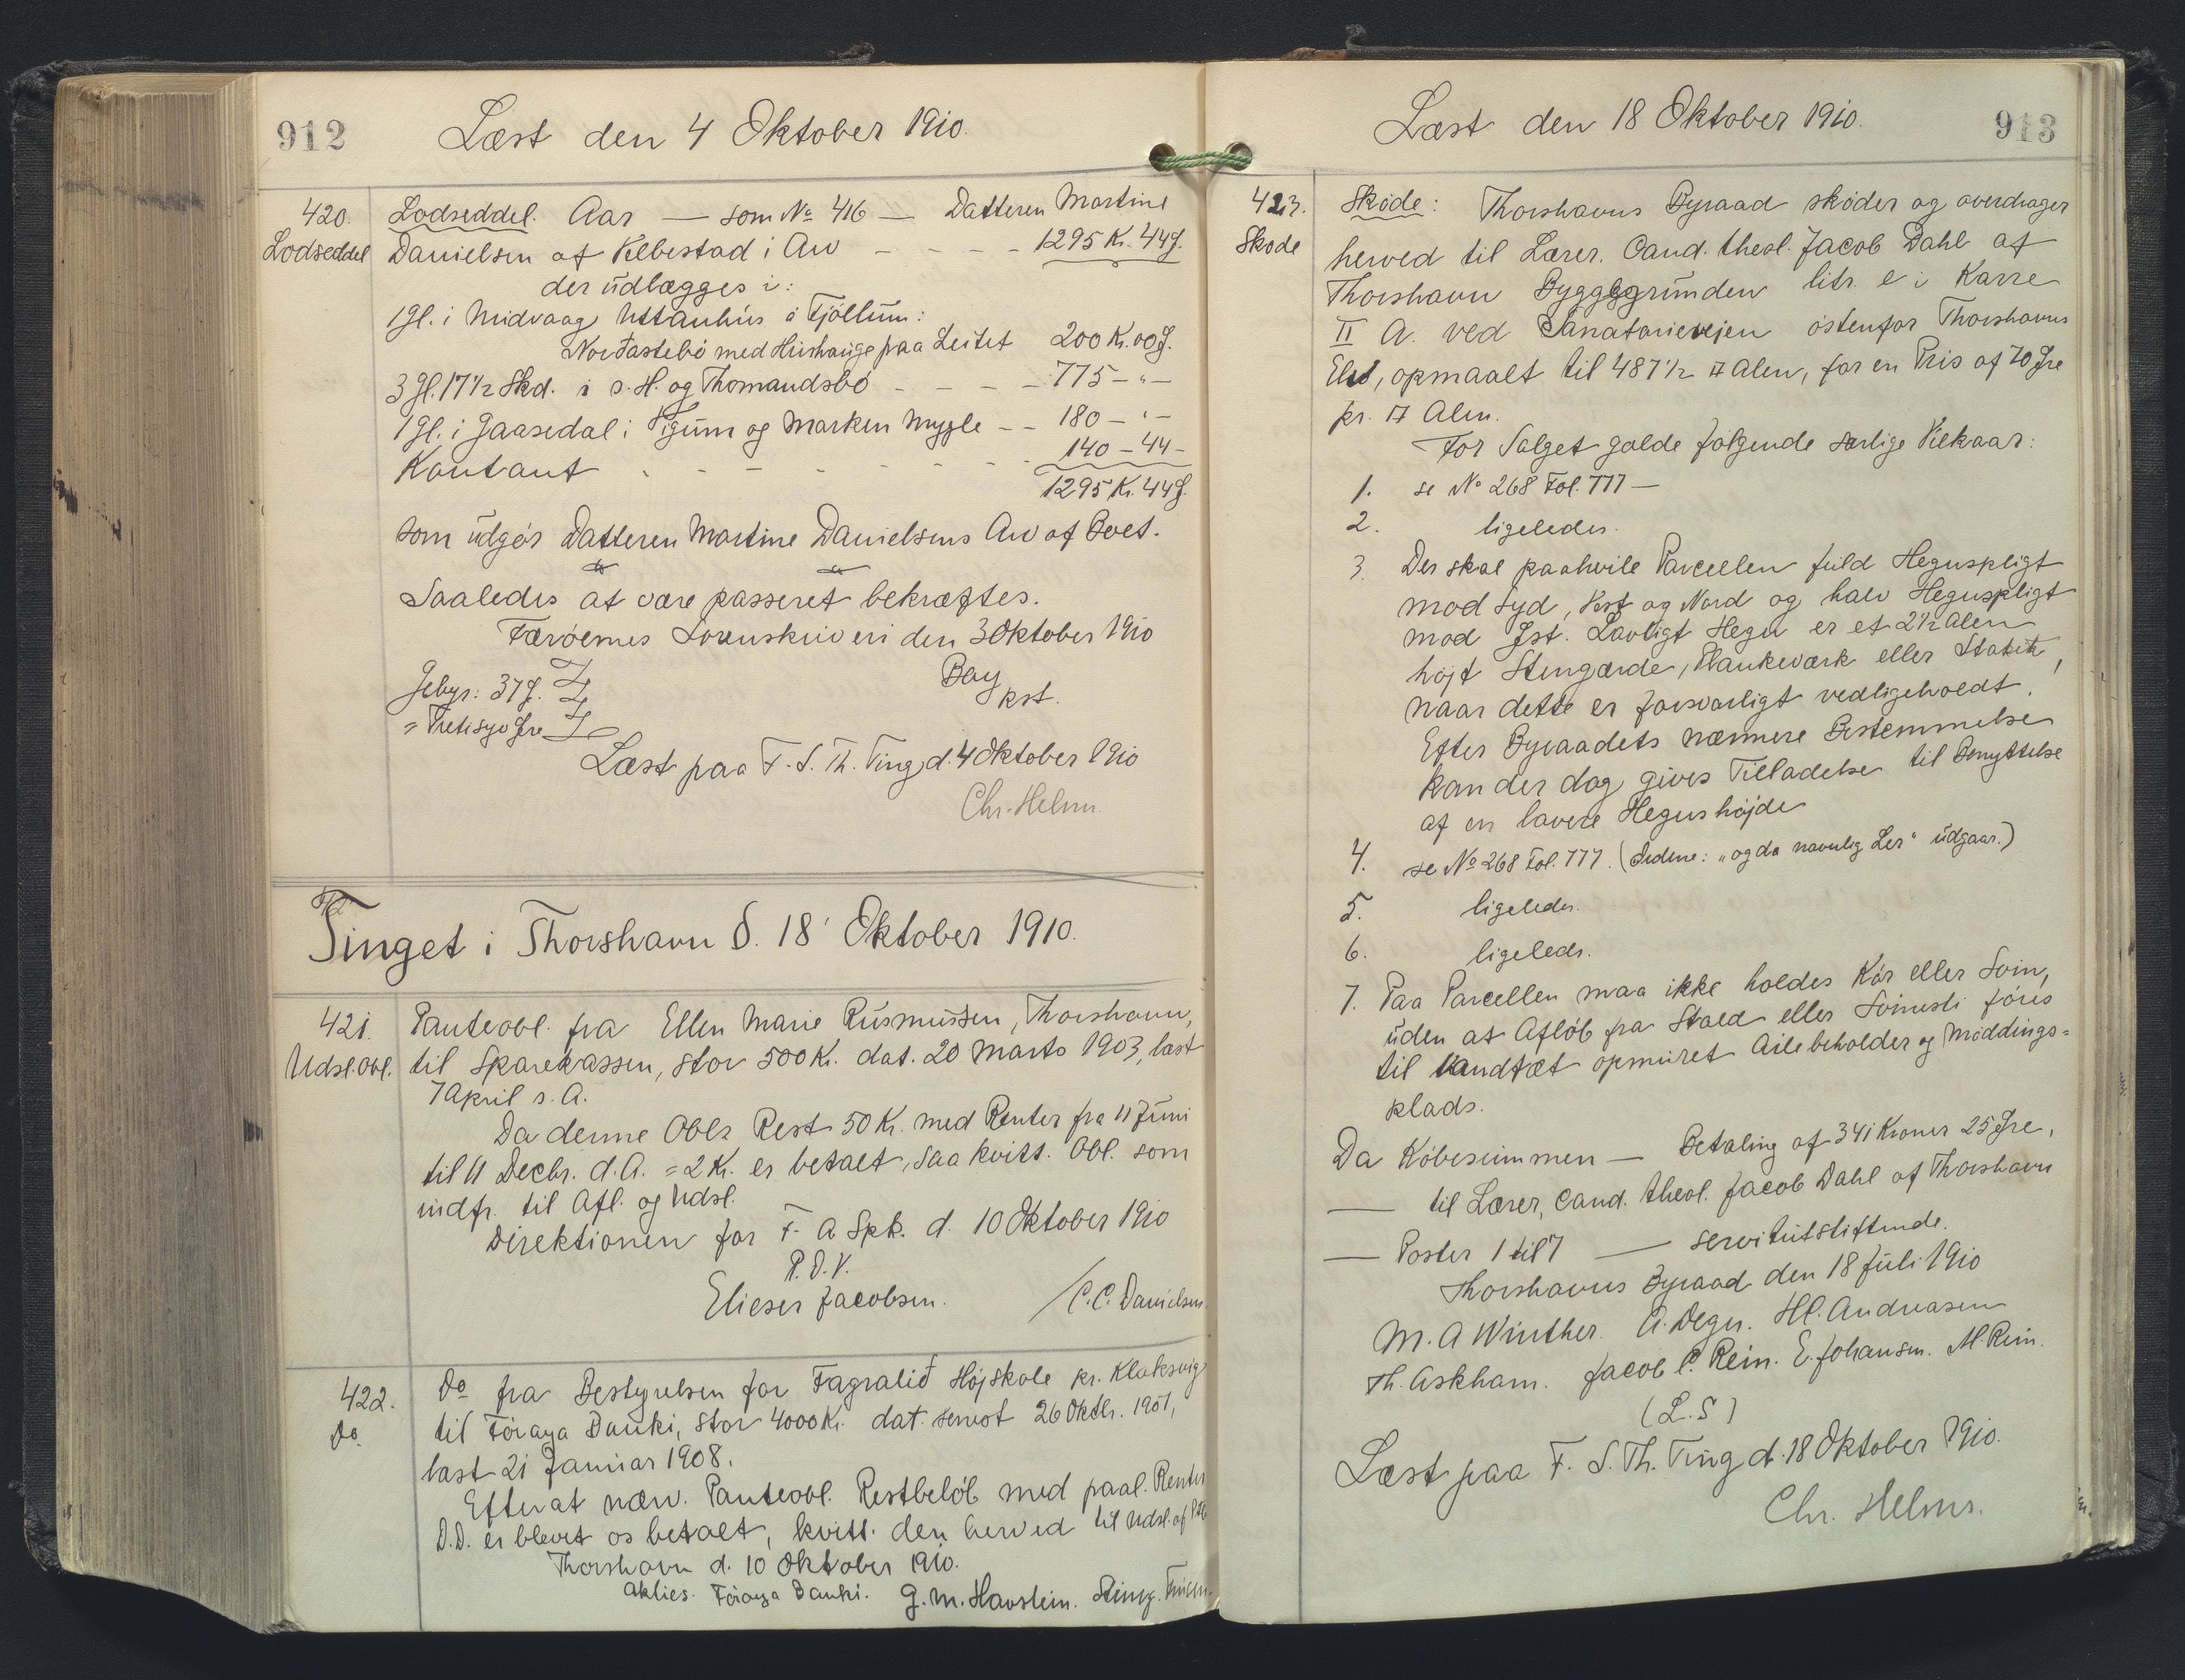 912
Læst den 4 Oktober 1910.
420. Lodseddel. Aar — som No 416 — Datteren Martine
Lodseddel Danielsen af Kelbestad i Arv - - - - 1295 Kr. 44 Ø.
der udlægges i:
1 Gl. i Midvaag Uttanhús á Fjöllum:
Norðastebö med Hushauge paa Leitet 200 Kr. 00 Ø.
3 Gl. 17 1/2 Skd. i s. H. og Thomandsbö - - - - 775 - " -
1 Gl. i Gaasedal i Tigum og Marken Mygle - - 180 - " -
Kontant - - - - - - - 140 - 44 -
1295 Kr. 44 Ø.
som udgør Datteren Martine Danielsens Arv af Boet.
Saaledes at være passeret bekræftes.
Færöernes Sorenskriveri den 3 Oktober 1910
Bay
kst.
Gebyr: 37 Ø.
= Tretisyv Øre
Læst paa F. S. Th. Ting d. 4 Oktober 1910
Chr. Helms.
Tinget i Thorshavn d. 18' Oktober 1910.
421. Panteobl. fra Ellen Marie Rasmussen, Thorshavn,
Udsl. Obl. til Sparekassen, stor 500 Kr. dat. 20 Marts 1903, læst
7 April s. A.
Da denne Obls Rest 50 Kr. med Renter fra 11 Juni
til 11 Decbr. d. A. = 2 Kr. er betalt, saa kvitt. Obl. som
indfr. til Afl. og Udsl.
Direktionen for F. A. Spk. d. 10 Oktober 1910
P. D. V.
Elieser Jacobsen. / C. C. Danielsen.
422. Do fra Bestyrelsen for Fagralið Højskole pr. Klaksvig
Do. til Föroya Banki, stor 4000 Kr. dat. 26 Oktbr. 1907,
læst 21 Januar 1908.
Efterat nærv. Panteobl. Restbeløb med paal. Renter
D. D. er blevet os betalt, kvitt. den herved til Udsl. af
Thorshavn d. 10 Oktober 1910.
Akties. Föroya Banki. G. M. Havstein.
Læst den 18 Oktober 1910. 913
423. Skøde: Thorshavns Byraad skøder og overdrager
Skøde herved til Lærer, Cand. theol. Jacob Dahl af
Thorshavn Byggegrunden litr. e i Karre
II A. ved Sanatorievejen østenfor Thorshavns
Elv, opmaalt til 487 1/2 □ Alen, for en Pris af 70 Øre
pr. □ Alen.
For Salget gælde følgende særlige Vilkaar:
1. se No 268 Fol. 777 —
2. ligeledes.
3. Der skal paahvile Parcellen fuld Hegnspligt
mod Syd, Vest og Nord og halv Hegnspligt
mod Øst. Lovligt Hegn er et 2 1/2 Alen
højt Stengærde, Plankeværk eller Stakit,
naar dette er forsvarligt vedligeholdt.
Efter Byraadets nærmere Bestemmelse
kan der dog gives Tilladelse til Benyttelse
af en lavere Hegnshøjde
4. se No 268 Fol. 777. (Ordene: "og da navnlig Ler" udgaar.)
5. ligeledes.
6. ligeleds.
7. Paa Parcellen maa ikke holdes Kør eller Svin,
uden at Afløb fra Stald eller Svinesti føres
til vandtæt opmuret Ailebeholder og Møddings=
plads.
Da Købesummen — Betaling af 341 Kroner 25 Øre,
— til Lærer, Cand. theol. Jacob Dahl af Thorshavn
— Poster 1 til 7 — servitutstiftende.
Thorshavns Byraad den 18 Juli 1910
M. A Winther. A. Degn. Hl. Andreasen
Th. Askham. Jacob C. Rein. E. Johansen. M. Rein.
(L. S)
Læst paa F. S. Th. Ting d. 18 Oktober 1910.
Chr. Helms.